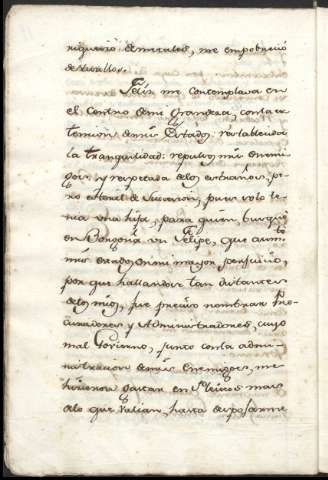 riqueció de metales, me empobreció
de vasallos.
Feliz me contemplava en
el Centro de mi Grandeza, con la ex
tension de mis Estados, restablecida
la tranquilidad: repulsos mis enemi
gos, y respetada de los estraños, pe
ro esteril de Sucesion, pues solo te
nia una hija, para quien busqué
en Borgoña un Felipe, que aumtó
mis estados en mi mayor perjuicio,
por que hallandose tan distantes
de los mios, fue preciso nombrar Pro
curadores y Administradores, cuyo
mal Govierno, junto con la admi
nistracion de mis Enemigos, me
hicieron gastar en Pleitos mas
de lo que valian, hasta desposarme